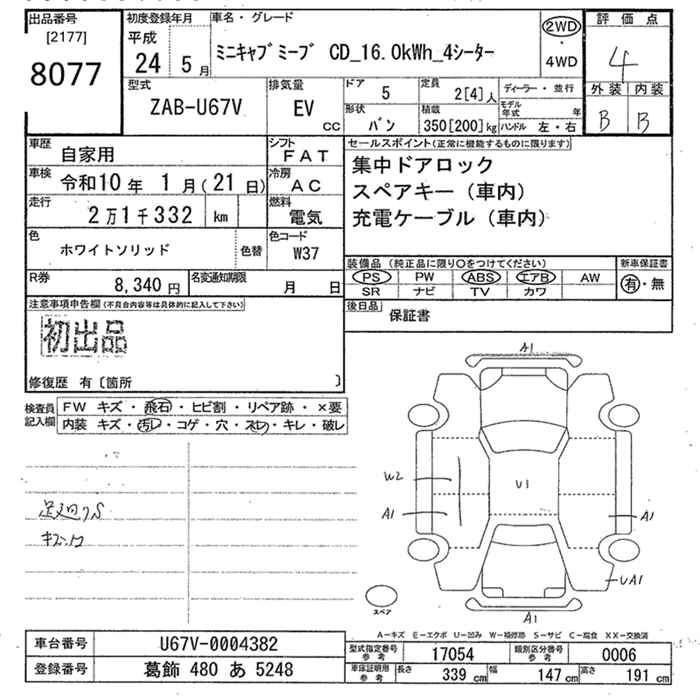 出品番号 [2177] 8077
初度登録年月 平成 24 5月
車名・グレード ミニキャブ ミーブ CD_16.0kWh_4シーター
2WD ・ 4WD
評価点 4
外装 内装 B B
型式 ZAB-U67V
排気量 EV CC
ドア 5
定員 2[4]人
形状 バン
積載 350[200]kg
ディーラー・並行
モデル年式 年
ハンドル 左・右
車歴 自家用
シフト FAT
車検 令和10年 1月(21日)
冷房 AC
走行 2万1千332 km
燃料 電気
色 ホワイトソリッド 色替
色コード W37
R券 8,340円
名変通知期限 月 日
セールスポイント(正常に機能するものに限ります)
集中ドアロック
スペアキー(車内)
充電ケーブル(車内)
装備品(純正品に限り○をつけてください)
PS PW ABS エアB AW
SR ナビ TV カワ
新車保証書 有・無
後日品 保証書
注意事項申告欄(不具合内容等は具体的に記入して下さい)
初出品
修復歴 有〔箇所 〕
検査員記入欄
FW キズ・飛石・ヒビ割・リペア跡・×要
内装 キズ・汚レ・コゲ・穴・スレ・キレ・破レ
足廻りS
キズ
A1
W2
U1
A1
A1
UA1
A1
スペア
A-キズ E-エクボ U-凹み W-補修跡 S-サビ C-腐食 XX-交換済
車台番号 U67V-0004382
登録番号 葛飾 480 あ 5248
型式指定番号 参考 17054
類別区分番号 参考 0006
車庫証明用 参考 長さ 339 cm 幅 147 cm 高さ 191 cm